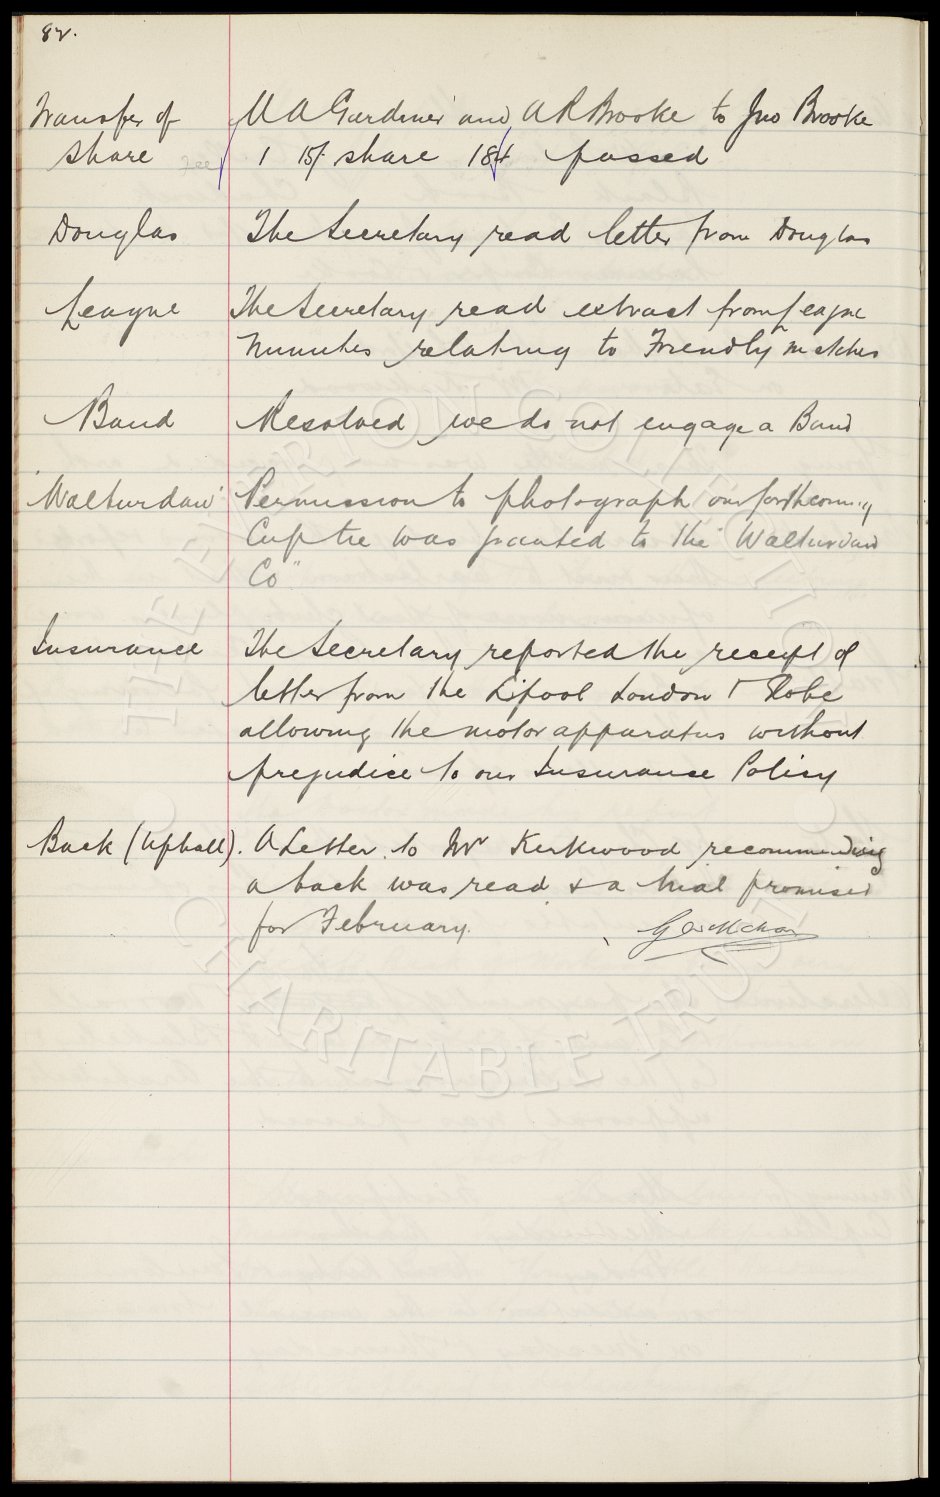 82.
Transfer of M A Gardiner and A R Brooke to Jno Brooke
Share Fee 1 15/- share 184 passed
Douglas The Secretary read letter from Douglas
League The Secretary read extract from League
Minutes relating to Friendly matches
Band Resolved we do not engage a Band
"Walturdaw" Permission to photograph our forthcoming
Cup tie was granted to the "Walturdaw
Co"
Insurance The Secretary reported the receipt of
letter from the L'pool London & Globe
allowing the motor apparatus without
prejudice to our Insurance Policy
Back (Uphall). A Letter to Mr Kirkwood recommending
a back was read & a trial promised
for February.
THE EVERTON COLLECTION
CHARITABLE TRUST